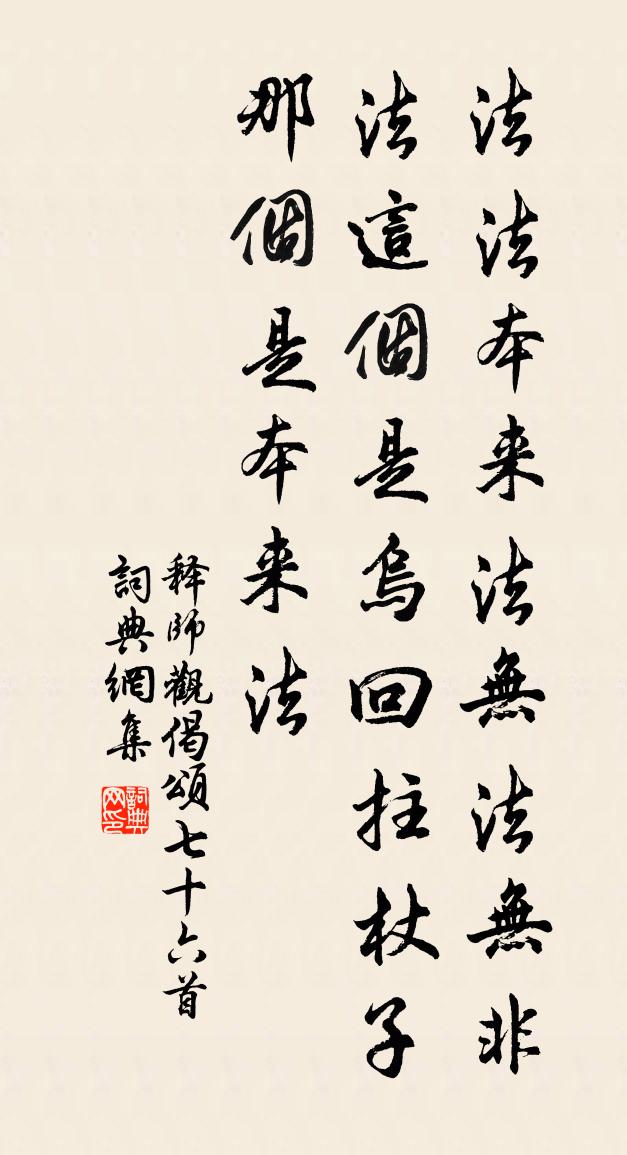 法法本来法無法無非
法這個是烏回拄杖子
那個是本来法
释師觀偈頌七十六首
詞典網集
詞典网印